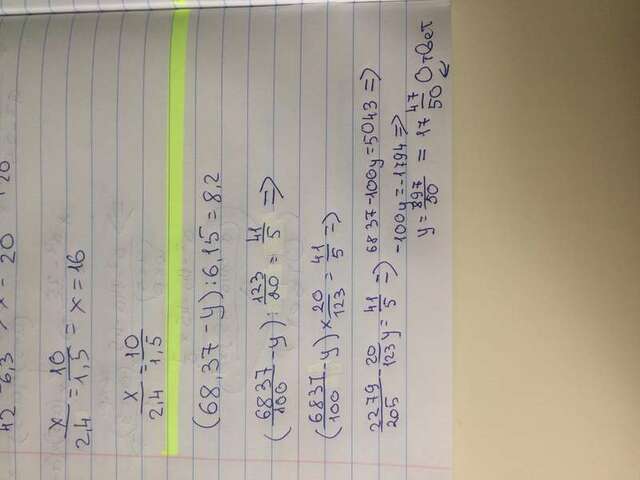 42 6,3 x = 20 20
x/2,4 = 10/1,5 = x = 16
x/2,4 = 10/1,5
(68,37 - y) : 6,15 = 8,2
(6837/100 - y) : 123/20 = 41/5 =>
(6837/100 - y) × 20/123 = 41/5 =>
2279/205 - 20/123 y = 41/5 => 6837 - 100y = 5043 =>
-100y = -1794 =>
y = 897/50 = 17 47/50 Ответ